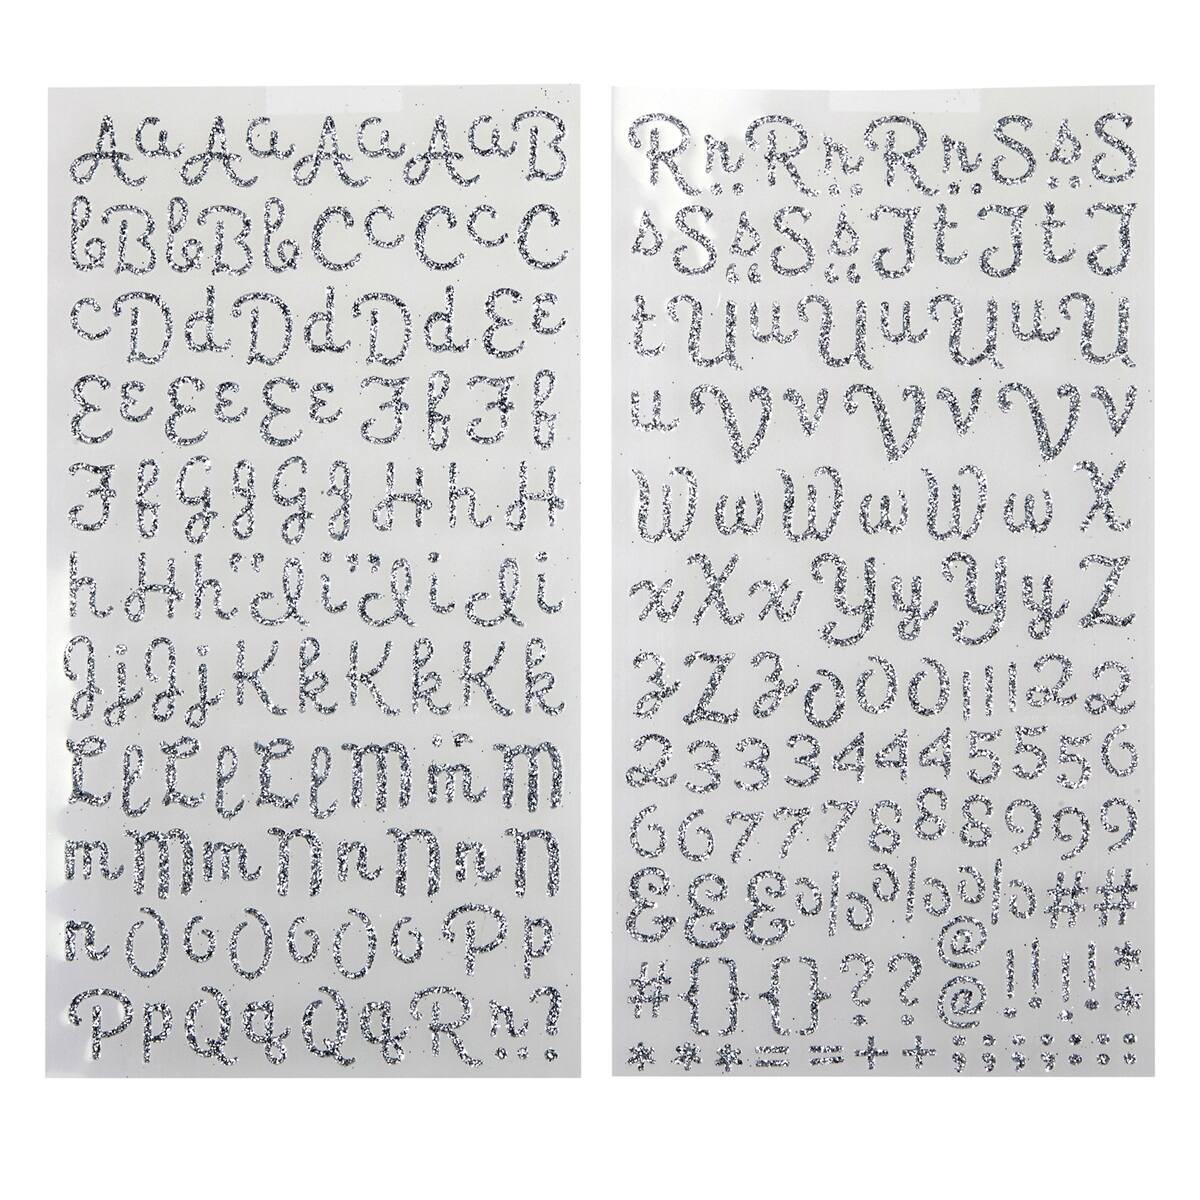 A a A a A a A a B
b B b B b C c C c C
c D d D d D d E e
E e E e E e F f F f
F f G g G g H h H
h H h " I i " I i I i
J j J j K k K k K k
L l L l L l M m M
m M m N n N n N
n O o O o O o P p
P p Q q Q q R r ?
R r R r R r S s S
s S s S s T t T t T
t U u U u U u U
u V v V v V v
W w W w W w X
x X x Y y Y y Z
z Z z 0 0 0 1 1 1 2 2
2 3 3 3 4 4 4 5 5 5 6
6 6 7 7 7 8 8 8 9 9 9
& & & % % % # #
# { } { } ? ? @ @ ! ! ! ! *
* * * = = + + ; ; ; : : :